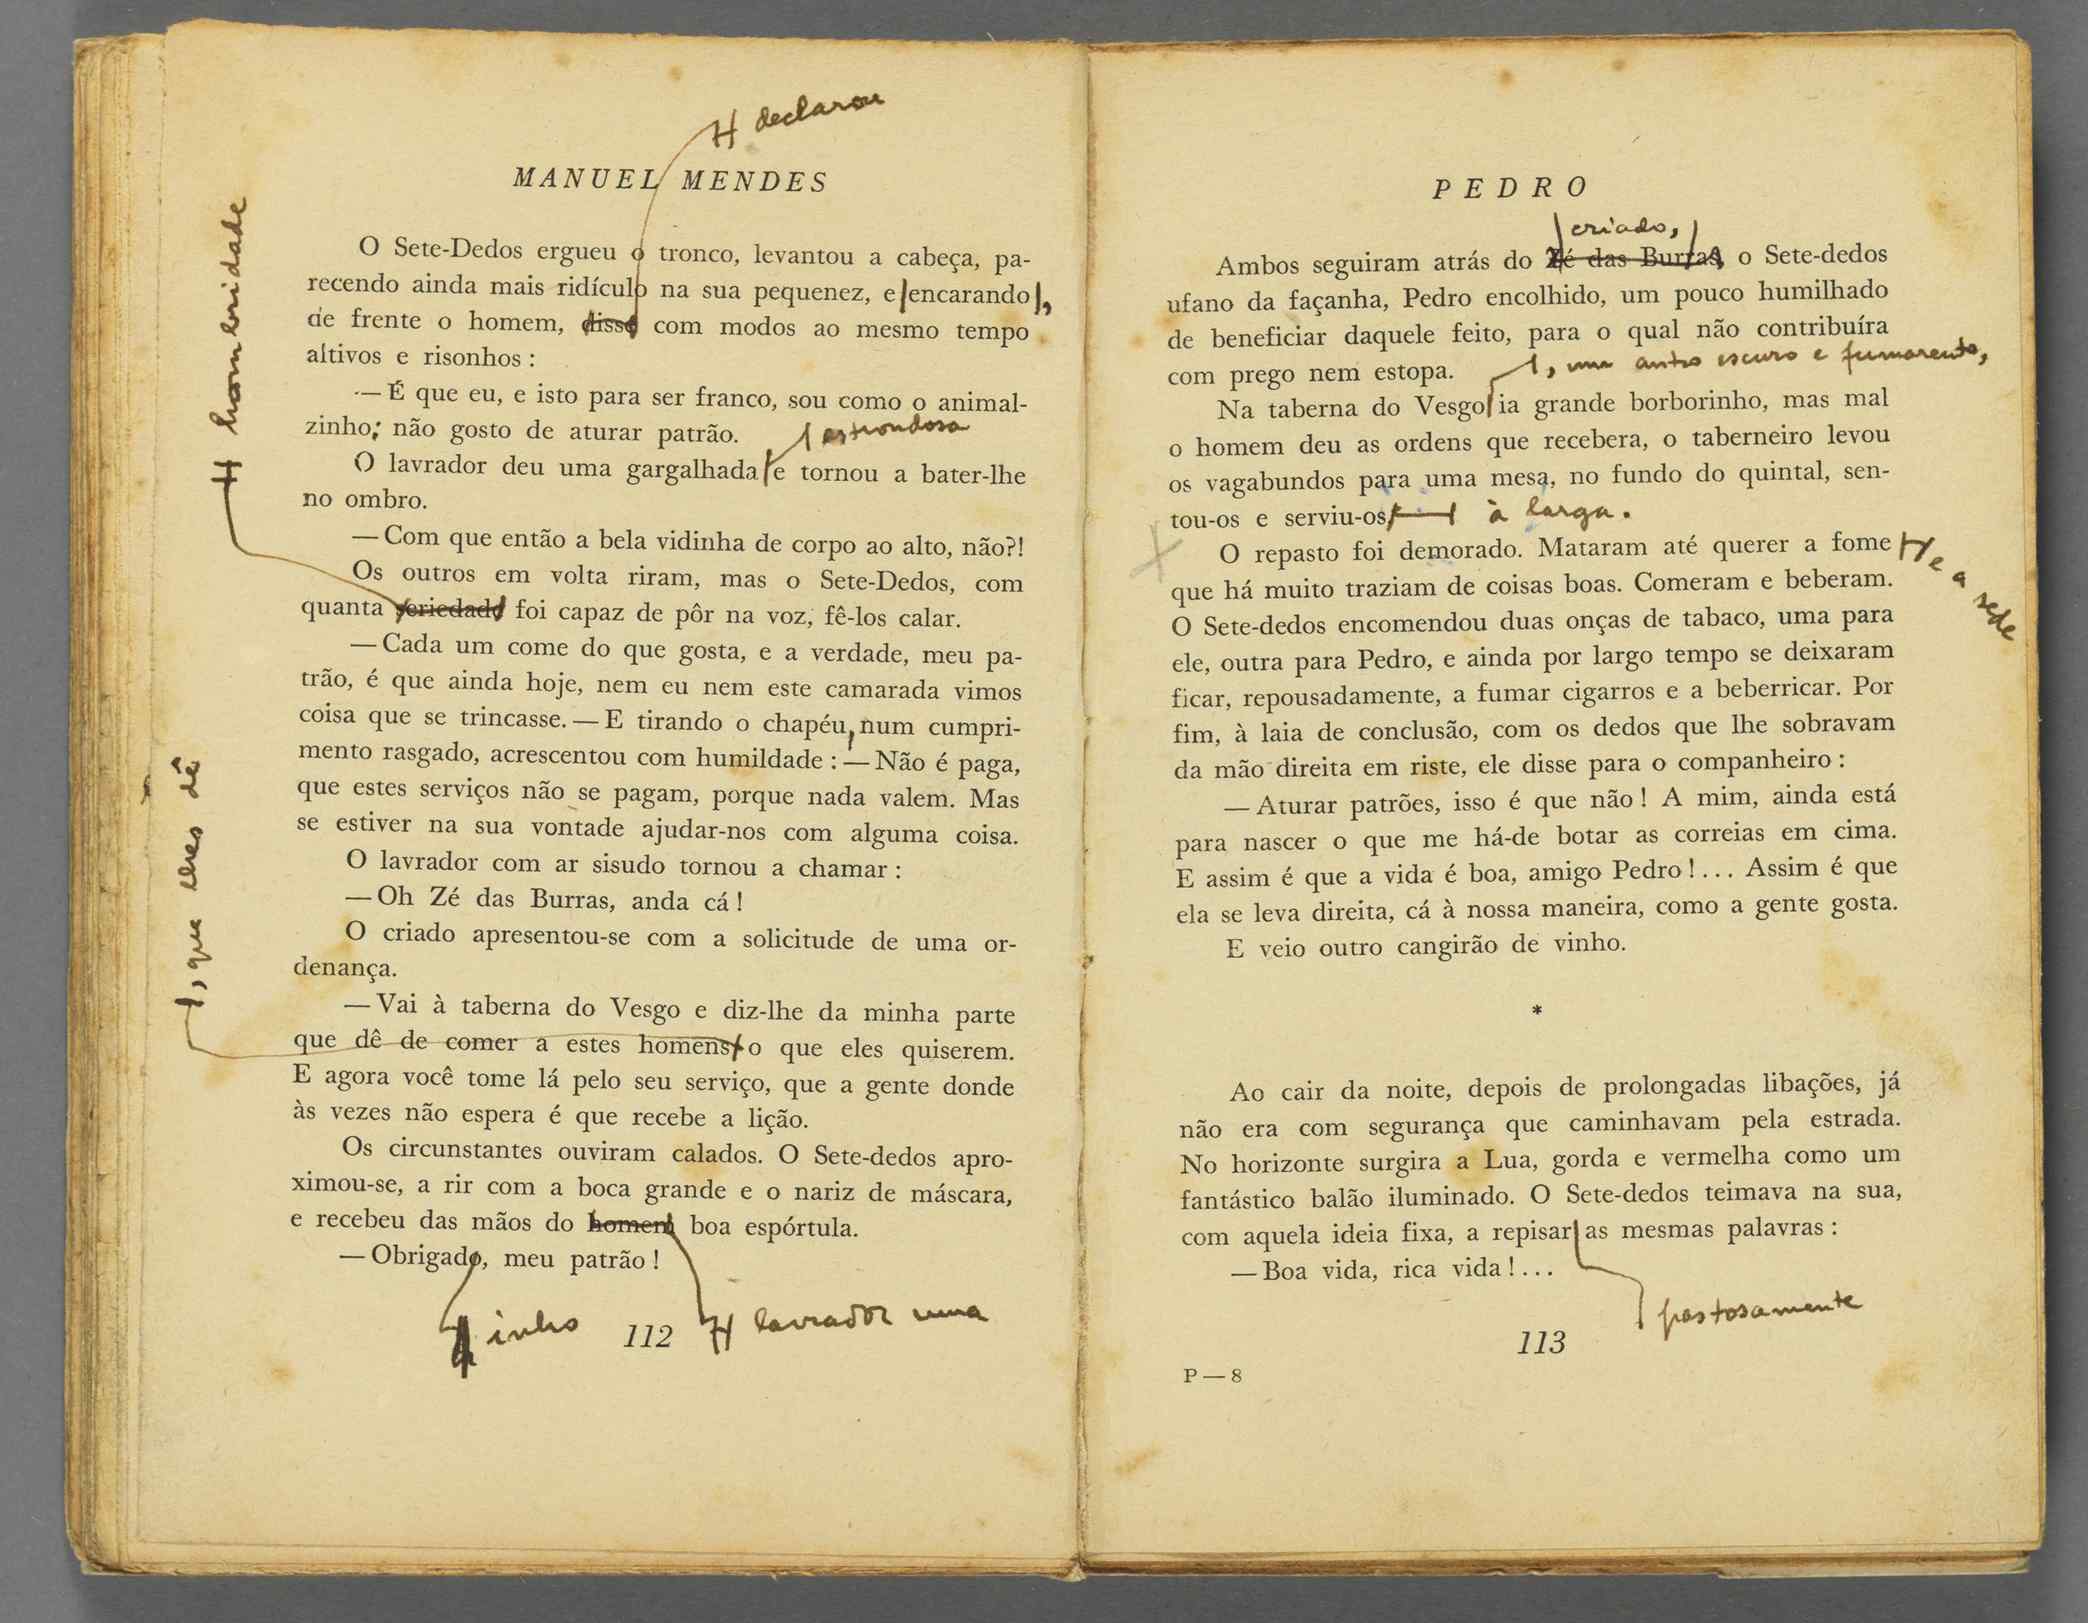 declarou
MANUEL MENDES
O Sete-Dedos ergueu o tronco, levantou a cabeça, pa-
recendo ainda mais ridículo na sua pequenez, e encarando,
de frente o homem, disse com modos ao mesmo tempo
altivos e risonhos :
— É que eu, e isto para ser franco, sou como o animal-
zinho; não gosto de aturar patrão.
estrondosa
O lavrador deu uma gargalhada e tornou a bater-lhe
no ombro.
— Com que então a bela vidinha de corpo ao alto, não?!
Os outros em volta riram, mas o Sete-Dedos, com
hombridade
quanta seriedade foi capaz de pôr na voz, fê-los calar.
— Cada um come do que gosta, e a verdade, meu pa-
trão, é que ainda hoje, nem eu nem este camarada vimos
coisa que se trincasse. — E tirando o chapéu, num cumpri-
mento rasgado, acrescentou com humildade : — Não é paga,
que estes serviços não se pagam, porque nada valem. Mas
se estiver na sua vontade ajudar-nos com alguma coisa.
O lavrador com ar sisudo tornou a chamar :
— Oh Zé das Burras, anda cá !
O criado apresentou-se com a solicitude de uma or-
denança.
— Vai à taberna do Vesgo e diz-lhe da minha parte
, que lhes dê
que dê de comer a estes homens o que eles quiserem.
E agora você tome lá pelo seu serviço, que a gente donde
às vezes não espera é que recebe a lição.
Os circunstantes ouviram calados. O Sete-dedos apro-
ximou-se, a rir com a boca grande e o nariz de máscara,
e recebeu das mãos do homem boa espórtula.
— Obrigado, meu patrão !
inho
lavrador uma
112
PEDRO
criado,
Ambos seguiram atrás do Zé das Burras, o Sete-dedos
ufano da façanha, Pedro encolhido, um pouco humilhado
de beneficiar daquele feito, para o qual não contribuíra
com prego nem estopa.
, um antro escuro e fumarento,
Na taberna do Vesgo ia grande borborinho, mas mal
o homem deu as ordens que recebera, o taberneiro levou
os vagabundos para uma mesa, no fundo do quintal, sen-
tou-os e serviu-os à larga.
O repasto foi demorado. Mataram até querer a fome
e a sede
que há muito traziam de coisas boas. Comeram e beberam.
O Sete-dedos encomendou duas onças de tabaco, uma para
ele, outra para Pedro, e ainda por largo tempo se deixaram
ficar, repousadamente, a fumar cigarros e a beberricar. Por
fim, à laia de conclusão, com os dedos que lhe sobravam
da mão direita em riste, ele disse para o companheiro :
— Aturar patrões, isso é que não ! A mim, ainda está
para nascer o que me há-de botar as correias em cima.
E assim é que a vida é boa, amigo Pedro !... Assim é que
ela se leva direita, cá à nossa maneira, como a gente gosta.
E veio outro cangirão de vinho.
*
Ao cair da noite, depois de prolongadas libações, já
não era com segurança que caminhavam pela estrada.
No horizonte surgira a Lua, gorda e vermelha como um
fantástico balão iluminado. O Sete-dedos teimava na sua,
com aquela ideia fixa, a repisar as mesmas palavras :
— Boa vida, rica vida !...
pastosamente
113
P — 8